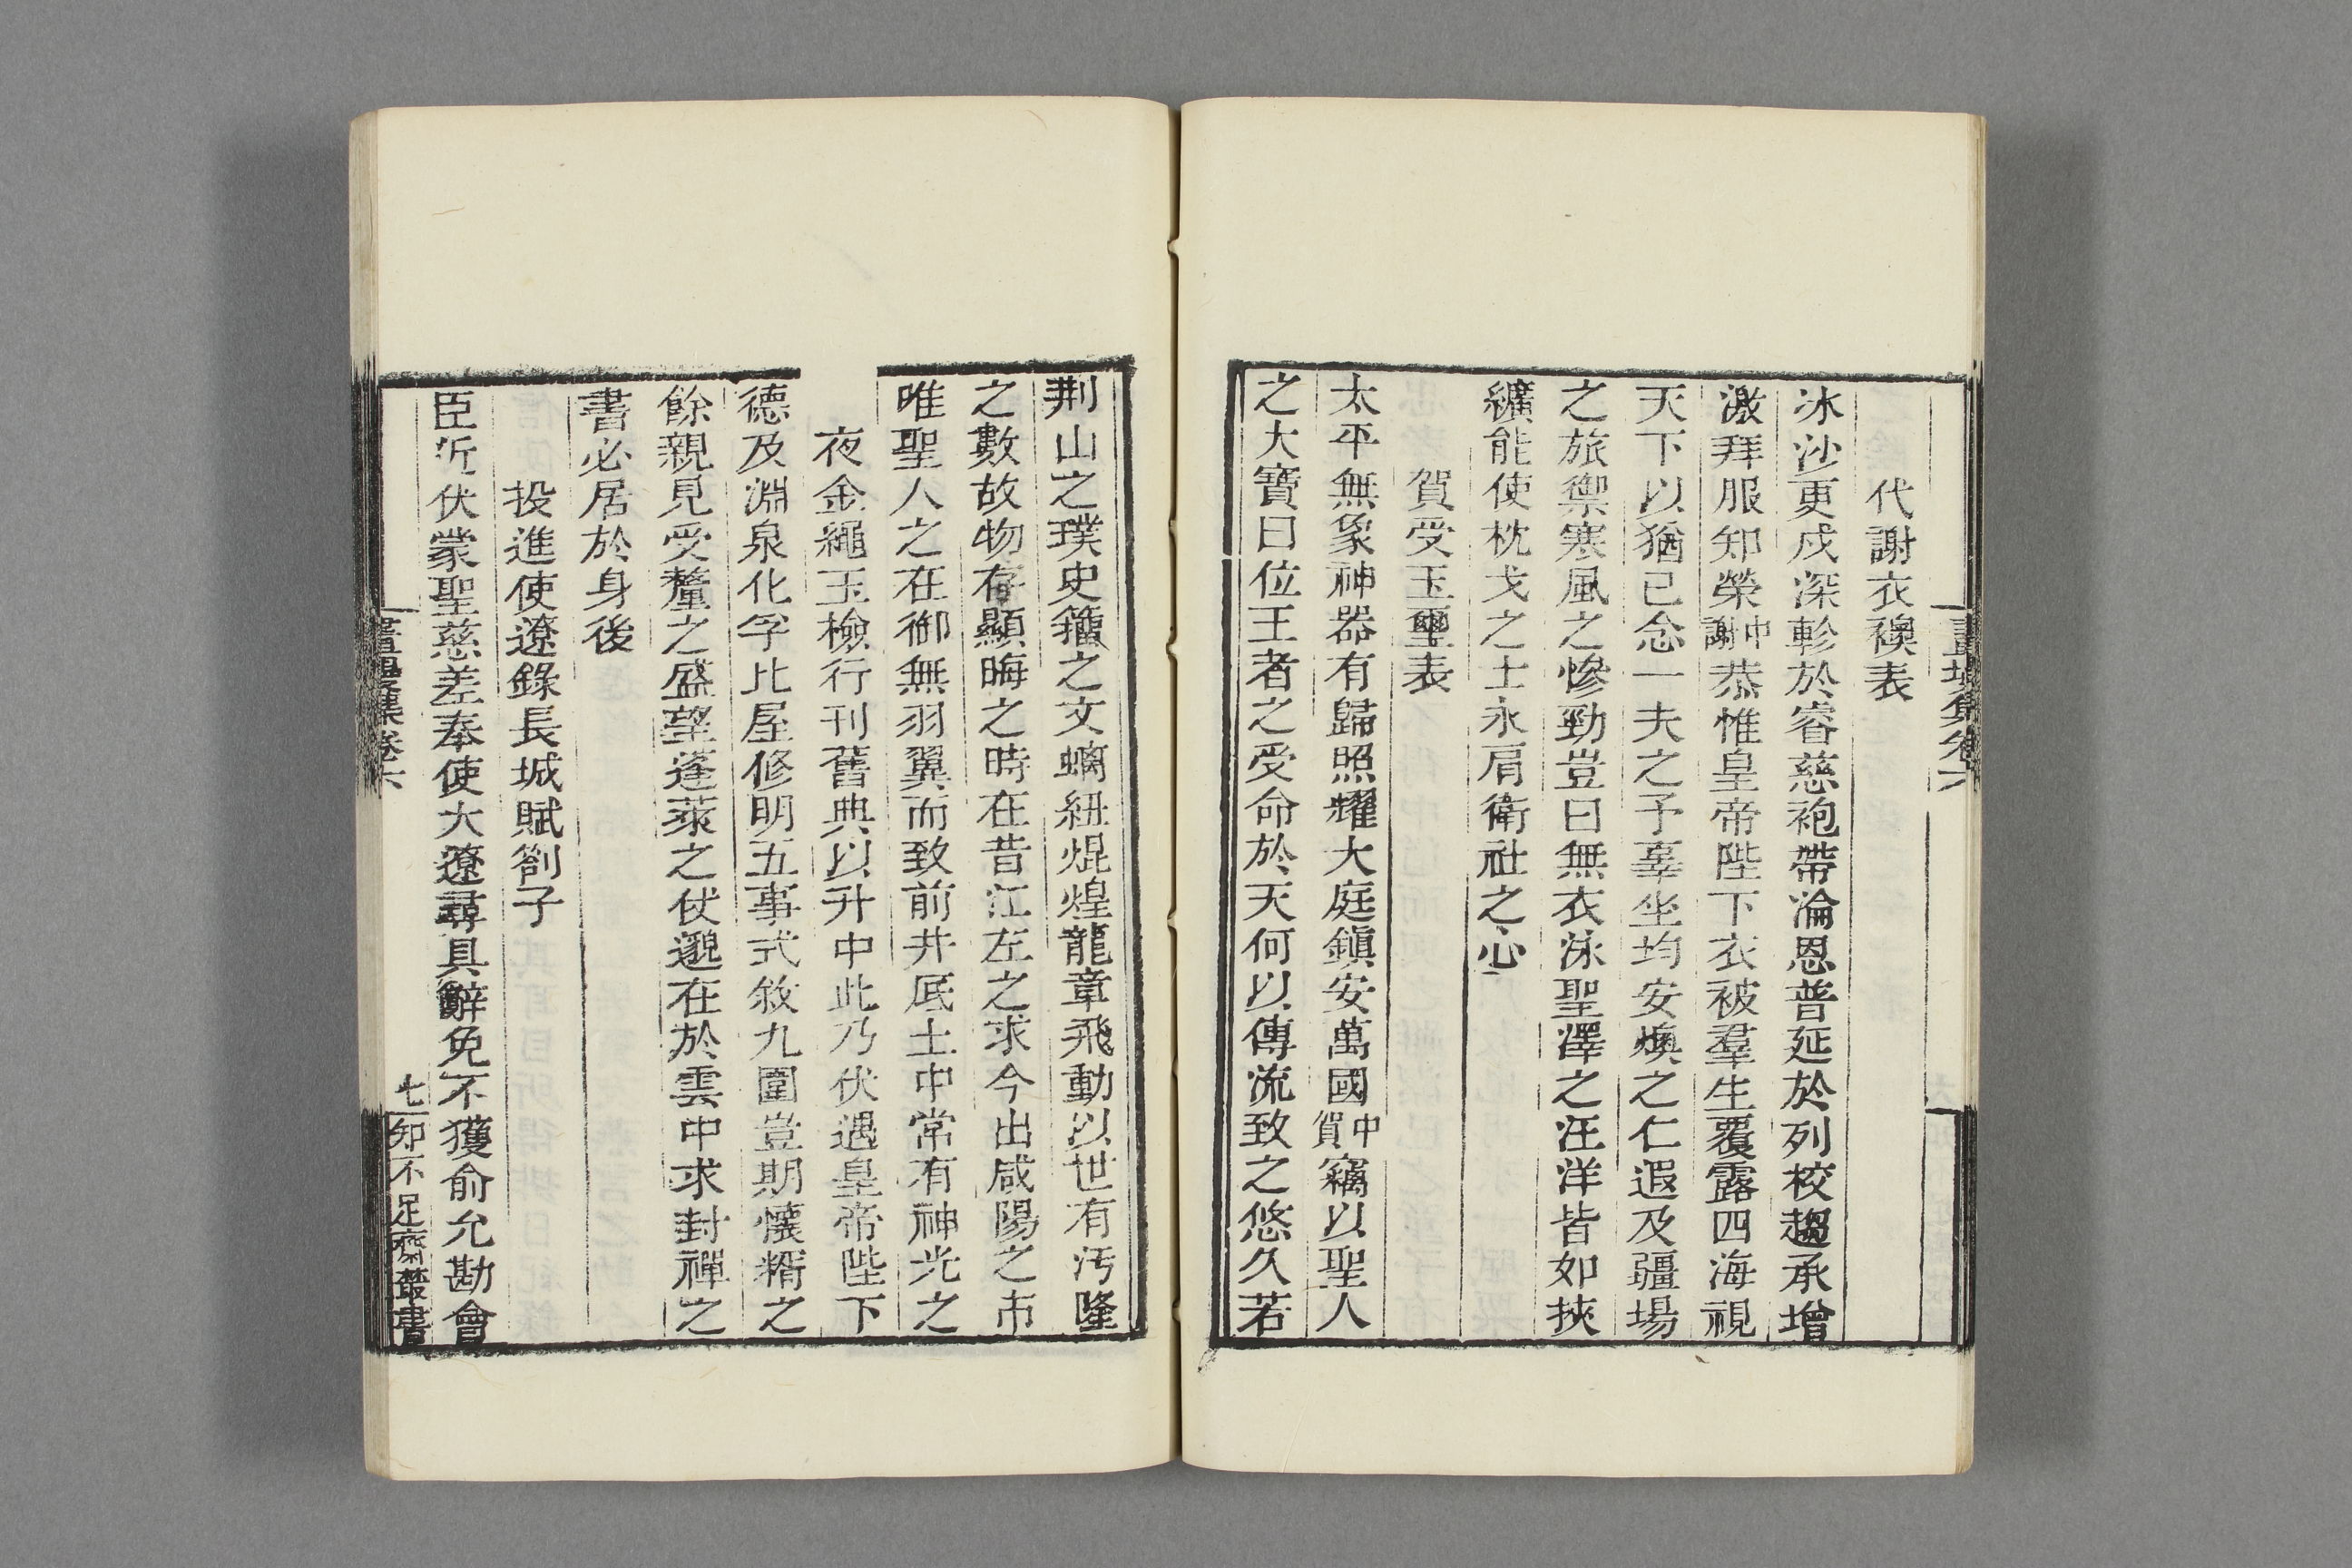 畫墁集卷六
代謝衣襖表
冰沙更戍深軫於睿慈袍帶淪恩普延於列校趨承增
激拜服知榮中謝恭惟皇帝陛下衣被羣生覆露四海視
天下以猶己念一夫之予辜坐均安燠之仁遐及疆場
之旅禦寒風之慘勁豈曰無衣泳聖澤之汪洋皆如挾
纊能使枕戈之士永肩衛社之心
賀受玉璽表
太平無象神器有歸照耀大庭鎮安萬國中賀竊以聖人
之大寶曰位王者之受命於天何以傳流致之悠久若
荆山之璞史籀之文螭紐焜煌龍章飛動以世有汚隆
之數故物存顯晦之時在昔江左之求今出咸陽之市
唯聖人之在御無羽翼而致前井底土中常有神光之
夜金繩玉檢行刊舊典以升中此乃伏遇皇帝陛下
德及淵泉化孚比屋修明五事式敘九圍豈期懷糈之
餘親見受釐之盛望蓬萊之仗邈在於雲中求封禪之
書必居於身後
投進使遼錄長城賦劄子
臣近伏蒙聖慈差奉使大遼尋具辭免不獲俞允勘會
畫墁集卷六
七
知不足齋叢書